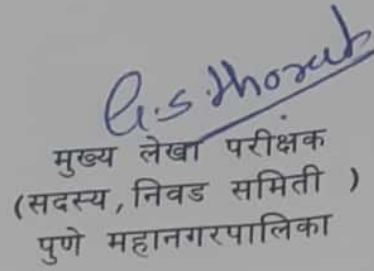 G.S. Thorat
मुख्य लेखा परीक्षक
(सदस्य, निवड समिती )
पुणे महानगरपालिका